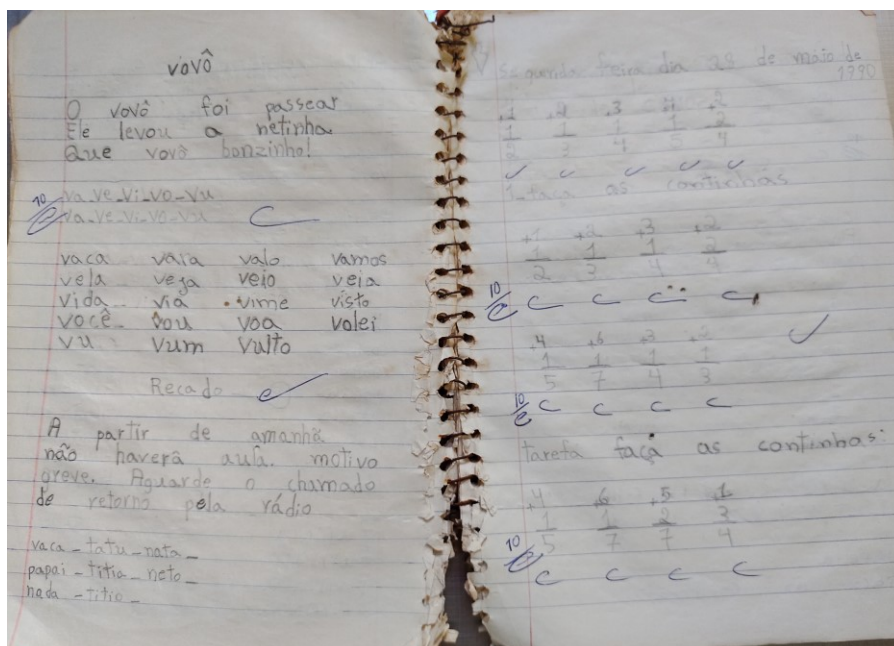 vovô
O vovô foi passear
Ele levou a netinha
Que vovô bonzinho!
10
va-ve-vi-vo-vu
va-ve-vi-vo-vu
vaca vara valo vamos
vela veja veio veia
vida via vime visto
você vou voa volei
vu vum vulto
Recado
A partir de amanhã
não haverá aula. motivo
greve. Aguarde o chamado
de retorno pela rádio
vaca - tatu - nata -
papai - titia - neto -
nada - titio -
Segunda feira dia 28 de máio de
1990
+1 +2 +3 +4 +2
1 1 1 1 2
2 3 4 5 4
1-faça as continhas
+1 +2 +3 +2
1 1 1 2
2 3 4 4
10
+4 +6 +3 +2
1 1 1 1
5 7 4 3
10
tarefa faça as continhas:
+4 +6 +5 +1
1 1 2 3
5 7 7 4
10